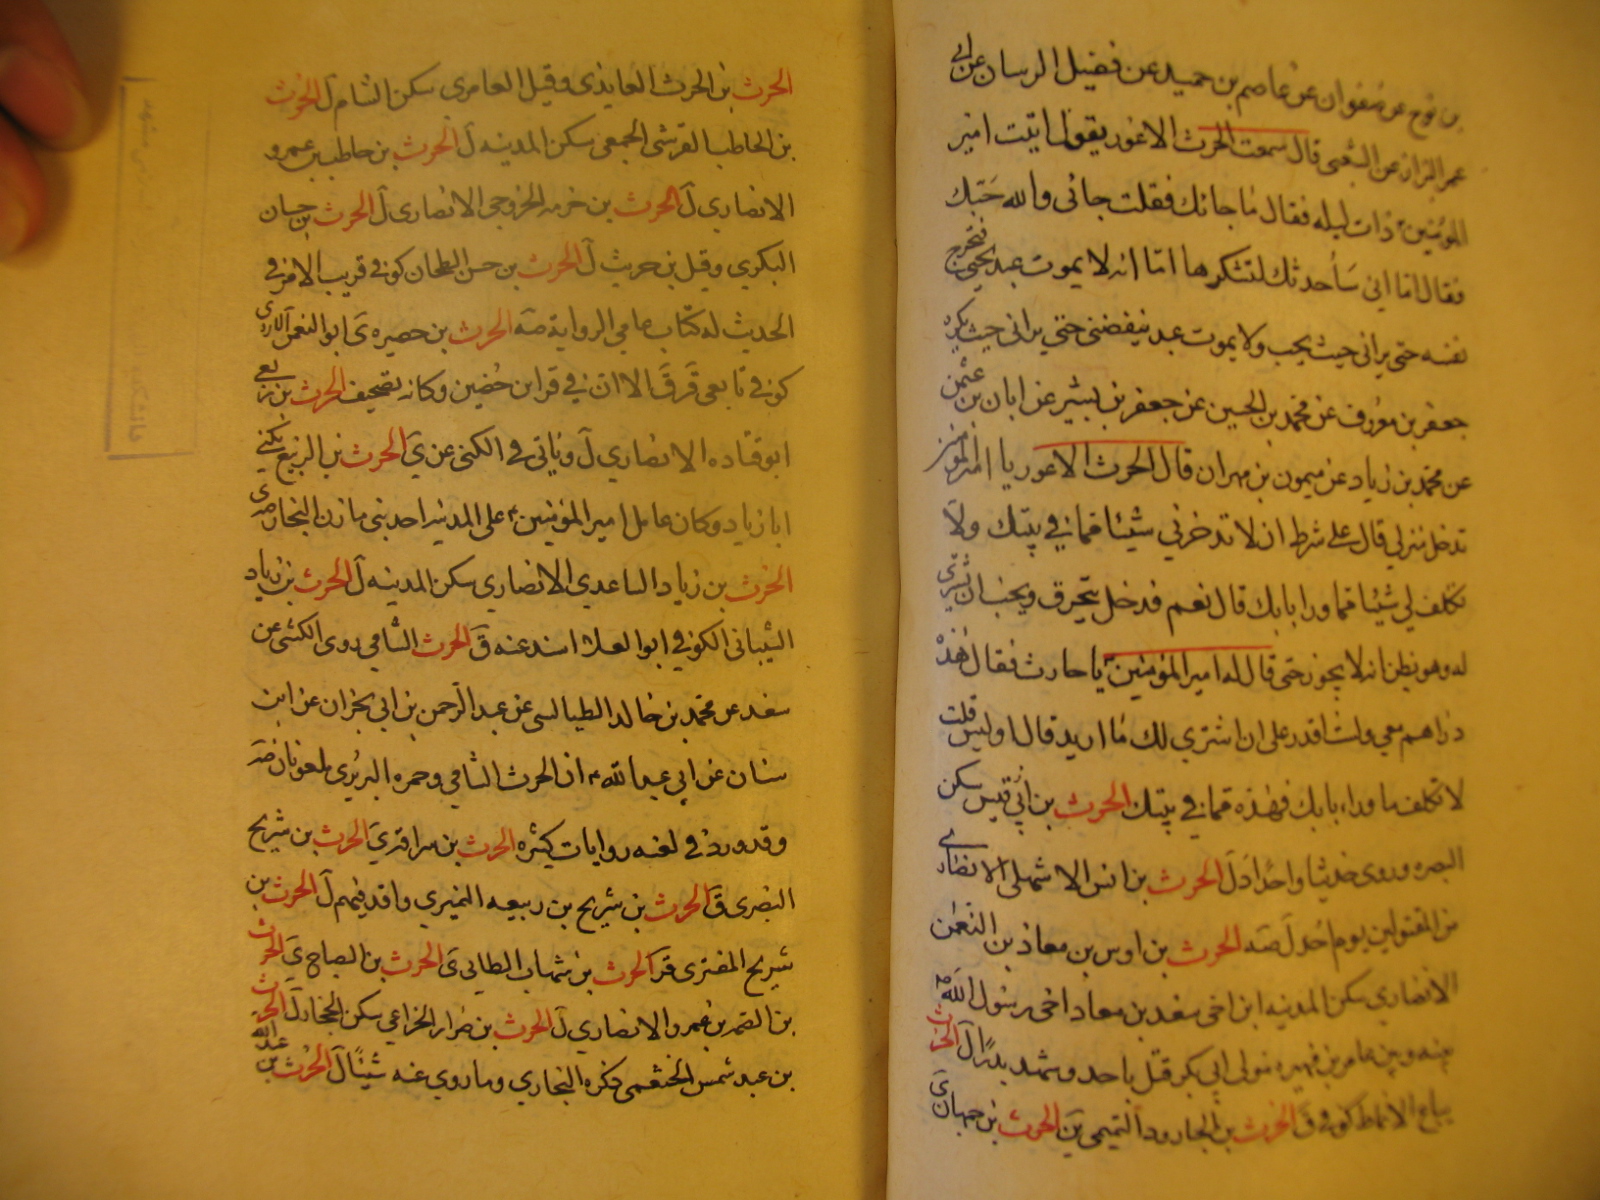 بن نوح عن صفوان عن عاصم بن حميد عن فضيل الرسان عن ابي
عمر البزاز عن الشعبى قال سمعت الحرث الاعور يقول اتيت امير
المؤمنين ذات ليله فقال ما جائك فقلت جائى والله حبك
فقال اما اني ساحدثك لتشكرها اما انه لا يموت عبد يحبني فتخرج
نفسه حتى يراني حيث يحب ولا يموت عبد يبغضني حتى يراني حيث يكره
جعفر بن معروف عن محمد بن الحسين عن جعفر بن بشير عن ابان بن عثمن
عن محمد بن زياد عن ميمون بن مهران قال الحرث الاعور يا امير المؤمنين
تدخل منزلي قال على شرط ان لا تدخرني شيئا مما في بيتك ولا
تكلف لي شيئا مما وراء بابك قال نعم فدخل يتحرق ويحب ان يشتري
له وهو يظن انه لا يجوز حتى قال له امير المؤمنين يا حارث فقال هذه
دراهم معي ولست اقدر على ان اشتري لك ما اريد قال اوليس قلت
لا تكلف ما وراء بابك فهذه مما في بيتك الحرث بن ابي قيس سكن
البصره وروى حديثا واحدا ل الحرث بن انس الاشهلى الانصارى
من المقتولين يوم احد ل صه الحرث بن اوس بن معاذ بن النعمن
الانصاري سكن المدينه ابن اخى سعد بن معاذ اخى رسول الله
بينه وبين عامر بن فهيره مولى ابي بكر قتل باحد وشهد بدرا ل الحرث
بياع الانماط كوفي ق الحرث بن الجارود التميمي ين الحرث بن جمهان ى
الحرث بن الحرث العايذى وقيل العامرى سكن الشام ل الحرث
بن الحاطب القرشى الجمحى سكن المدينه ل الحرث بن حاطب بن عمرو
الانصاري ل الحرث بن خزمه الخزرجى الانصارى ل الحرث بن حسان
البكري وقيل بن حريث ل الحرث بن حسن الطحان كوفى قريب الامر في
الحديث له كتاب عامي الرواية صه الحرث بن حصيره ى ابو النعمن الازدى
كوفى تابعى ق ر ق الا ان في قر ابن حضين وكانه تصحيف الحرث بن ربعى
ابو قتاده الانصاري ل وياتي في الكنى عن ى الحرث بن الربيع يكنى
ابا زياد وكان عامل امير المؤمنين على المدينه احد بني مازن النجار صه ى
الحرث بن زياد الساعدي الانصاري سكن المدينه ل الحرث بن زياد
الشيبانى الكوفي ابو العلا اسند عنه ق الحرث الشامي روى الكشى عن
سعد عن محمد بن خالد الطيالسى عن عبد الرحمن بن ابي نجران عن ابن
سنان عن ابي عبد الله ان الحرث الشامي وحمزه البربرى ملعونان صه
وقد ورد في لعنه روايات كثيره الحرث بن سراقه ى الحرث بن شريح
البصرى ق الحرث بن شريح بن ربيعه النميري وافد فيهم ل الحرث بن
شريح المنقرى قر الحرث بن شهاب الطايى ى الحرث بن الصباح ى الحرث
بن الصمه بن عمرو الانصاري ل الحرث بن ضرار الخزاعي سكن الحجاز ل الحرث
بن عبد شمس الخثعمى ذكره البخاري وما روي عنه شيئا ل الحرث بن عبد الله